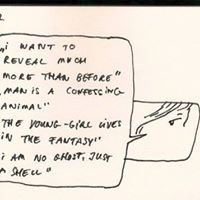 „I WANT TO
REVEAL MUCH
MORE THAN BEFORE"
„MAN IS A CONFESSING
ANIMAL"
„THE YOUNG-GIRL LIVES
IN THE FANTASY"
„I AM NO GHOST, JUST
A SHELL"